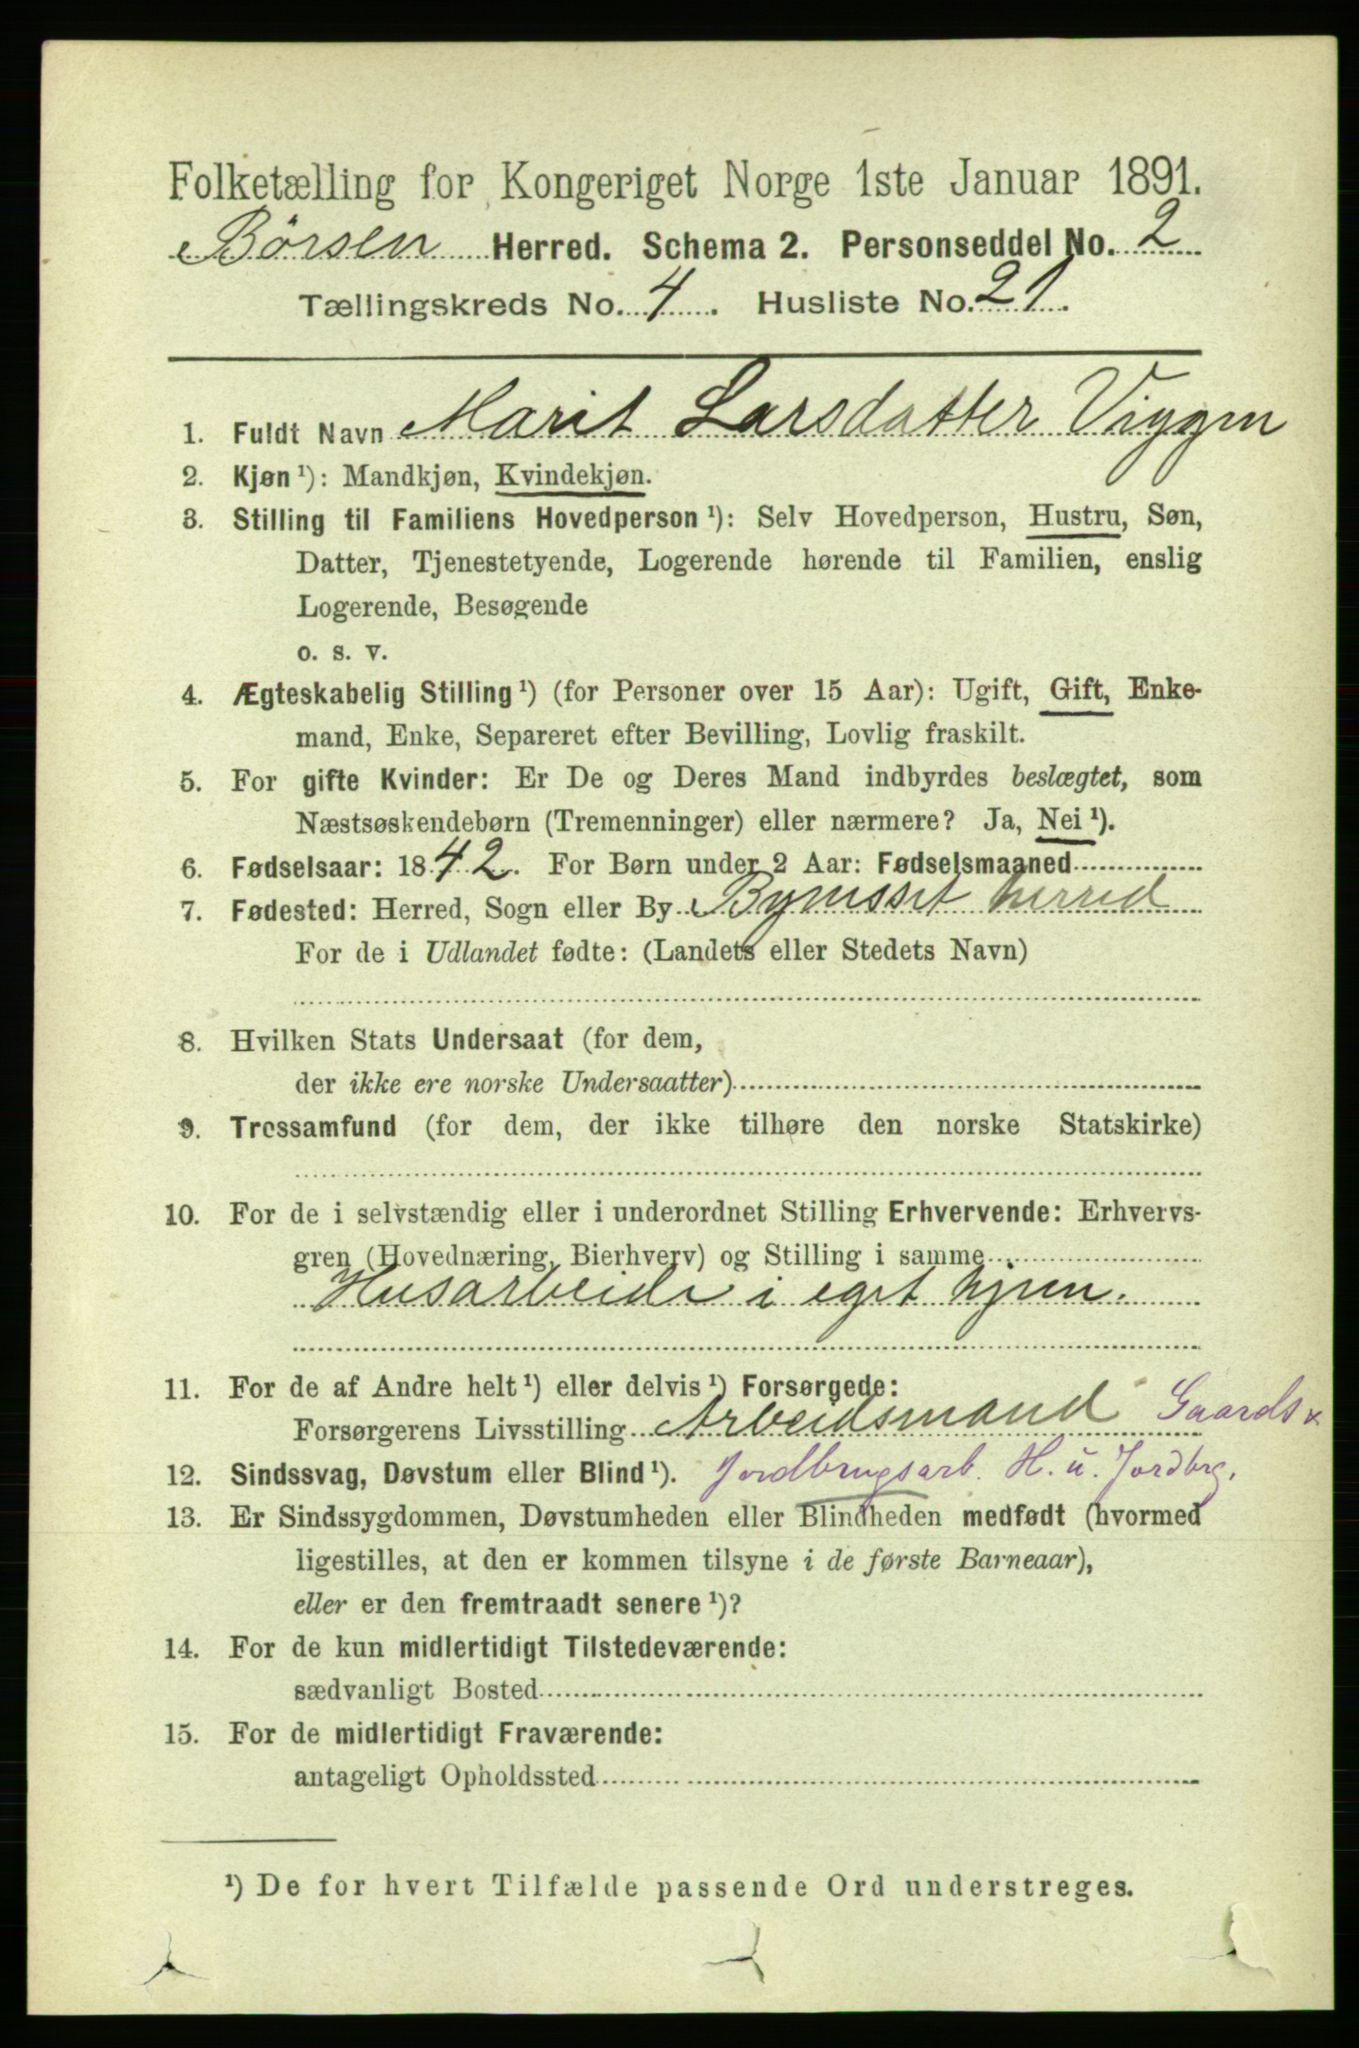 Folketælling for Kongeriget Norge 1ste Januar 1891.
Børsen Herred. Schema 2. Personseddel No. 2
Tællingskreds No. 4. Husliste No. 21.
1. Fuldt Navn Marit Larsdatter Viggen
2. Kjøn ¹): Mandkjøn, Kvindekjøn.
3. Stilling til Familiens Hovedperson ¹): Selv Hovedperson, Hustru, Søn,
Datter, Tjenestetyende, Logerende hørende til Familien, enslig
Logerende, Besøgende
o. s. v.
4. Ægteskabelig Stilling ¹) (for Personer over 15 Aar): Ugift, Gift, Enke-
mand, Enke, Separeret efter Bevilling, Lovlig fraskilt.
5. For gifte Kvinder: Er De og Deres Mand indbyrdes beslægtet, som
Næstsøskendebørn (Tremenninger) eller nærmere? Ja, Nei ¹).
6. Fødselsaar: 1842. For Børn under 2 Aar: Fødselsmaaned
7. Fødested: Herred, Sogn eller By Bynesset herred
For de i Udlandet fødte: (Landets eller Stedets Navn)
8. Hvilken Stats Undersaat (for dem,
der ikke ere norske Undersaatter)
9. Trossamfund (for dem, der ikke tilhøre den norske Statskirke)
10. For de i selvstændig eller i underordnet Stilling Erhvervende: Erhvervs-
gren (Hovednæring, Bierhverv) og Stilling i samme
Husarbeide i eget hjem.
11. For de af Andre helt ¹) eller delvis ¹) Forsørgede:
Forsørgerens Livsstilling Arbeidsmand Gaards x
12. Sindssvag, Døvstum eller Blind ¹). Jordbrugsarb. H. u. Jordbrg.
13. Er Sindssygdommen, Døvstumheden eller Blindheden medfødt (hvormed
ligestilles, at den er kommen tilsyne i de første Barneaar),
eller er den fremtraadt senere ¹)?
14. For de kun midlertidigt Tilstedeværende:
sædvanligt Bosted
15. For de midlertidigt Fraværende:
antageligt Opholdssted
¹) De for hvert Tilfælde passende Ord understreges.